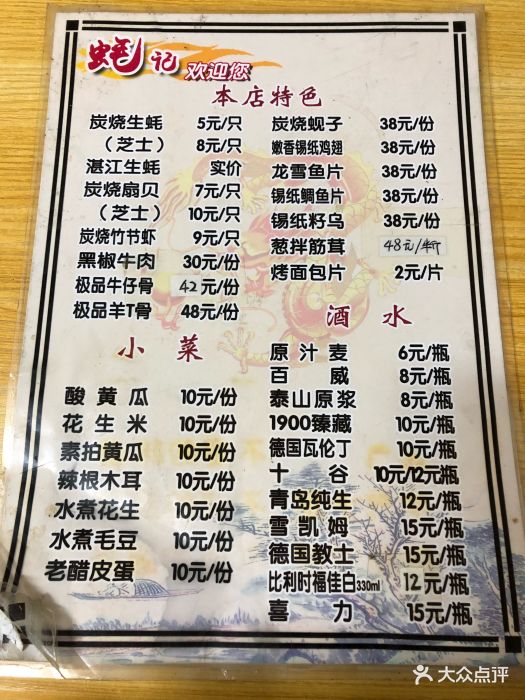 蚝记 欢迎您
本店特色
炭烧生蚝 5元/只
（芝士） 8元/只
湛江生蚝 实价
炭烧扇贝 7元/只
（芝士） 10元/只
炭烧竹节虾 9元/只
黑椒牛肉 30元/份
极品牛仔骨 42元/份
极品羊T骨 48元/份
炭烧蚬子 38元/份
嫩香锡纸鸡翅 38元/份
龙雪鱼片 38元/份
锡纸鲷鱼片 38元/份
锡纸籽乌 38元/份
葱拌筋茸 48元/斤
烤面包片 2元/片
小菜
酸黄瓜 10元/份
花生米 10元/份
素拍黄瓜 10元/份
辣根木耳 10元/份
水煮花生 10元/份
水煮毛豆 10元/份
老醋皮蛋 10元/份
酒水
原汁麦 6元/瓶
百威 8元/瓶
泰山原浆 8元/瓶
1900臻藏 10元/瓶
德国瓦伦丁 10元/瓶
十谷 10元/12元瓶
青岛纯生 12元/瓶
雪凯姆 15元/瓶
德国教士 15元/瓶
比利时福佳白330ml 12元/瓶
喜力 15元/瓶
大众点评